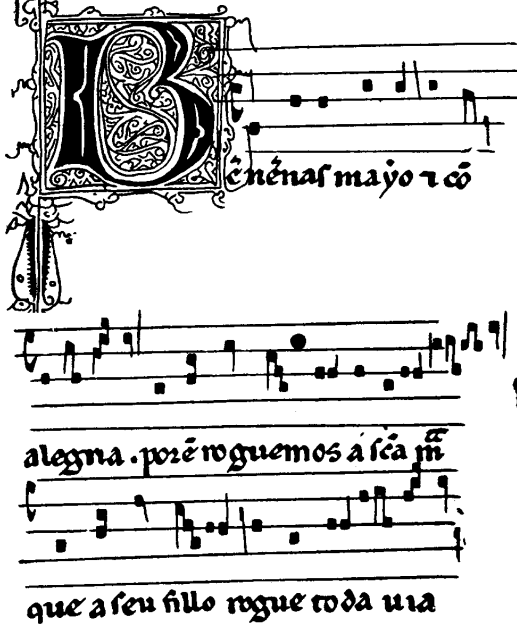 Bẽ uẽnaſ mayo ⁊ cõ
alegria . porẽ roguemos a ſc̃a mᵃ
que a ſeu fillo rogue toda uia